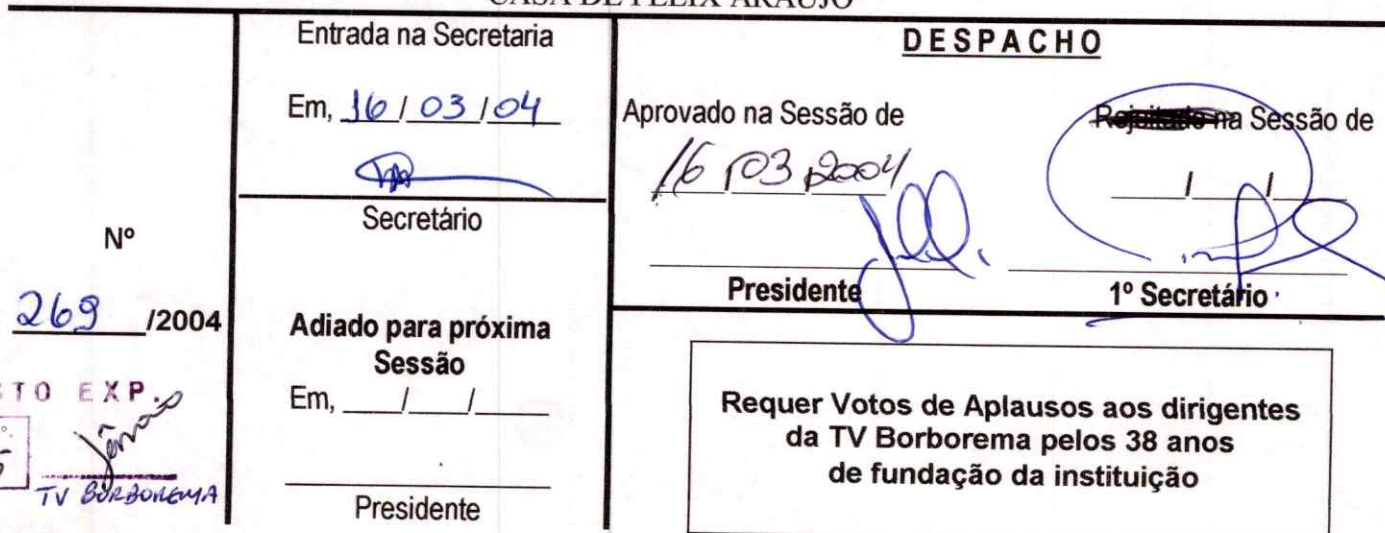 CASA DE FÉLIX ARAÚJO
Nº
269 /2004
TO EXP.
TV BORBOREMA
Entrada na Secretaria
Em, 16 / 03 / 04
Secretário
Adiado para próxima
Sessão
Em, ___/___/___
Presidente
DESPACHO
Aprovado na Sessão de
16 / 03 / 2004
Presidente
Rejeitado na Sessão de
___/___/___
1º Secretário
Requer Votos de Aplausos aos dirigentes
da TV Borborema pelos 38 anos
de fundação da instituição